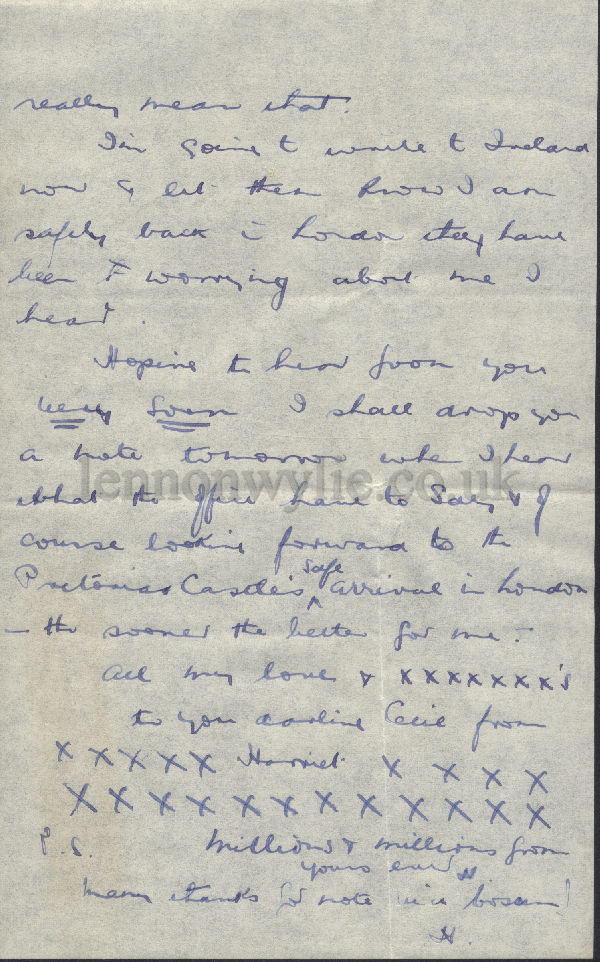 really mean that.
I'm going to write to Ireland
now & let them know I am
safely back in London they have
been worrying about me I
hear.
Hoping to hear from you
very soon I shall drop you
a note tomorrow when I hear
what the office have to say & of
course looking forward to the
Pretoria Castle's safe arrival in London
– the sooner the better for me –
All my love & xxxxxxx's
to you darling Cecil from
x x x x x Harriet x x x x
x x x x x x x x x x x x
P.S. Millions & millions from
yours ever H.
Many thanks for note bosun!
H.
lennonwylie.co.uk